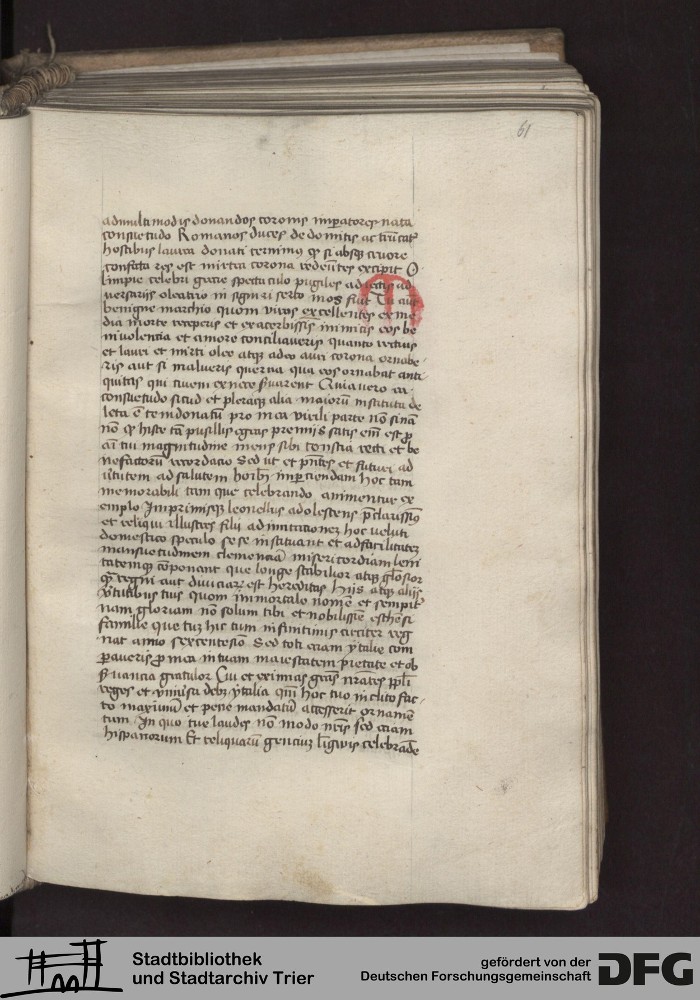 61
ad multimodis donandos coronis imperatores nata
consuetudo Romanos duces de domitis ac
hostibus laurea donari cernimus qd si absqz cruore
confecta res est mirtea corona redeuntes excipit O
limpie celebri grecie spectaculo pugiles ad
versariis oleatro in signiri serto mos fuit Tu aut
benigne marchio quom viros excellentes ex me
dia morte receperis et exacerbissis inimicis eos be
nivolencia et amore conciliaveris quanto rectius
et lauri et mirti oleo atqz adeo auri corona ornabe
ris aut si malueris quercia qua eos ornabat anti
quitas qui civem ex nece suarent Quia vero ea
consuetudo sicud et pleraqz alia maiorum instituta de
leta e te donatum pro mea virili parte non sinam
non qd histe tam pusillis egeas premiis satis eni est p
tui magnitudine mens sibi conscia recti et be
nefactorum recordacio Sed ut et pntes et futuri ad
virtutem ad salutem hominibus imperciendam hoc tam
memorabili tam que celebrando animentur ex
emplo Imprimisqz leonellus adolescens preclarissimus
et reliqui illustres filii ad imitacionez hoc veluti
domestico speculo sese instituant et ad facilitatez
mansuetudinem clemenciam misericordiam leni
tatemqz componant que longe stabilior atqz gliosior
qz regni aut diviciarum est hereditas Hiis atqz aliis
virtutibus tuis quom immortale nomen et sempiter
nam gloriam non solum tibi et nobilissime esthensi
familie que tuz hic tum in finitimis circiter reg
nat annos sexcentesimo Sed toti eciam ytalie com
paraveris p mea in tuam maiestatem pietate et ob
servancia gratulor Cui et eximias gras
reges et universa debz ytalia qui hoc tuo inclito fac
to maximum et pene mandatum accesserit orname
tum In quo tue laudes non modo nris sed eciam
hispanorum Et reliquarum genciuz lingwis celebrande
Stadtbibliothek
und Stadtarchiv Trier
gefördert von der
Deutschen Forschungsgemeinschaft
DFG